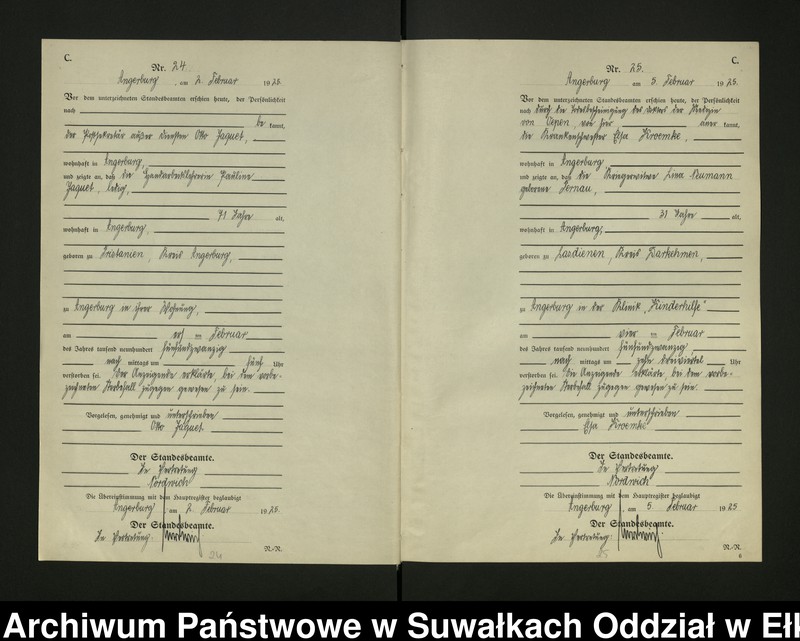 C.
Nr. 24.
Angerburg, am 2. Februar 1925.
Vor dem unterzeichneten Standesbeamten erschien heute, der Persönlichkeit
nach
be kannt,
der Postsekretär außer Diensten Otto Jaquet,
wohnhaft in Angerburg,
und zeigte an, daß die Handarbeitslehrerin Pauline
Jaquet, ledig,
71 Jahre alt,
wohnhaft in Angerburg,
geboren zu Kreis Angerburg,
zu Angerburg in ihrer Wohnung,
am ersten Februar
des Jahres tausend neunhundert fünfundzwanzig
nach mittags um fünf Uhr
verstorben sei. Der Anzeigende erklärte, bei dem vorbe-
zeichneten Sterbefall zugegen gewesen zu sein.
Vorgelesen, genehmigt und unterschrieben
Otto Jaquet
Der Standesbeamte.
In Vertretung
Nordwich
Die Übereinstimmung mit dem Hauptregister beglaubigt
Angerburg, am 2. Februar 1925.
Der Standesbeamte.
In Vertretung:
N.-R.
24
C.
Nr. 25.
Angerburg am 5. Februar 1925.
Vor dem unterzeichneten Standesbeamten erschien heute, der Persönlichkeit
nach durch die des der Medizin
von von hier aner kannt,
die Krankenschwester Elsa Kroemke,
wohnhaft in Angerburg
und zeigte an, daß die Kriegerwitwe Lina Neumann
geborene Pernau,
31 Jahre alt,
wohnhaft in Angerburg,
geboren zu Lazdienen, Kreis Darkehmen,
zu Angerburg in der Klinik „Kinderhilfe"
am vier ten Februar
des Jahres tausend neunhundert fünfundzwanzig
nach mittags um zehn dreiviertel Uhr
verstorben sei. Die Anzeigende erklärte, bei dem vorbe-
zeichneten Sterbefall zugegen gewesen zu sein.
Vorgelesen, genehmigt und unterschrieben
Elsa Kroemke
Der Standesbeamte.
In Vertretung
Nordwich
Die Übereinstimmung mit dem Hauptregister beglaubigt
Angerburg, am 5. Februar 1925.
Der Standesbeamte.
In Vertretung:
N.-R.
25
6
Archiwum Państwowe w Suwałkach Oddział w Eł